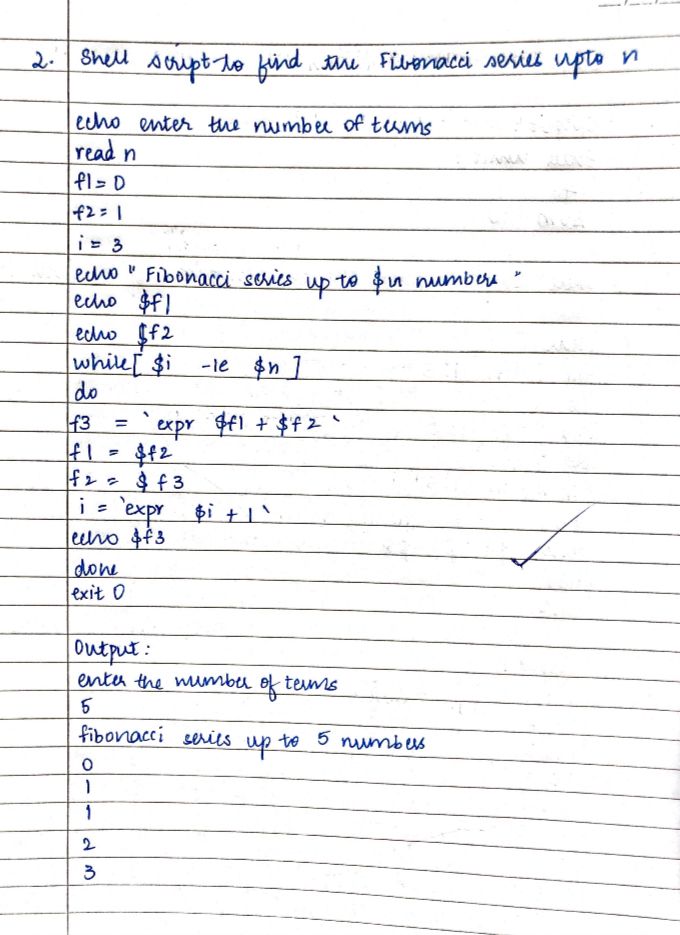 2. Shell script to find the Fibonacci series upto n
echo enter the number of terms
read n
f1 = 0
f2 = 1
i = 3
echo " Fibonacci series up to $n numbers "
echo $f1
echo $f2
while[ $i -le $n ]
do
f3 = `expr $f1 + $f2 `
f1 = $f2
f2 = $f3
i = `expr $i + 1`
echo $f3
done
exit 0
Output :
enter the number of terms
5
fibonacci series up to 5 numbers
0
1
1
2
3